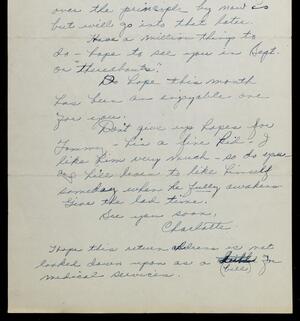 over the principle by now so
but will go into that later.
Have a million things to
do - hope to see you in Sept.
or "thereabouts".
Do hope this month
has been an enjoyable one
for you.
Don't give up hopes for
Tommy - he's a fine kid - I
like him very much - so do you
and he'll learn to like himself
someday when he fully awakens
Give the lad time.
See you soon,
Charlotte
I hope this return address is not
looked down upon as a (bill) for
medical services.